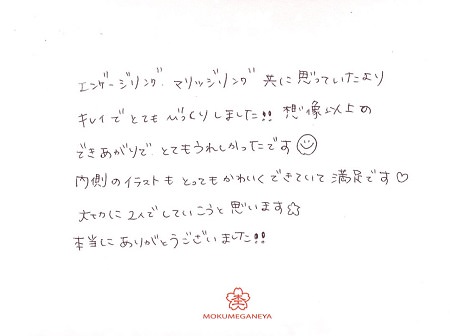 エンゲージリング、マリッジリング 共に 思っていたより
キレイで とても びっくりしました!! 想像以上の
できあがりで とてもうれしかったです☺
内側のイラストも とってもかわいくできていて 満足です♡
大切に 2人でしていこうと思います☆
本当に ありがとうございました!!
MOKUMEGANEYA